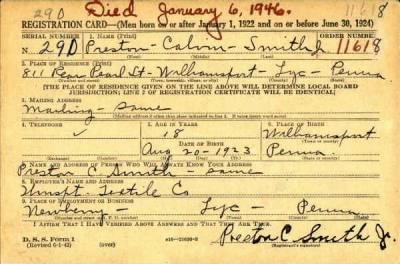 29D Died January 6, 1946. 11618
REGISTRATION CARD—(Men born on or after January 1, 1922 and on or before June 30, 1924)
SERIAL NUMBER 1. NAME (Print) ORDER NUMBER
29D Preston - Calvin - Smith Jr 11618
(First) (Middle) (Last)
2. PLACE OF RESIDENCE (Print)
811 Rear Pearl St - Williamsport - Lyc - Penna
[THE PLACE OF RESIDENCE GIVEN ON THE LINE ABOVE WILL DETERMINE LOCAL BOARD
JURISDICTION; LINE 2 OF REGISTRATION CERTIFICATE WILL BE IDENTICAL]
3. MAILING ADDRESS
Mailing - same
[Mailing address if other than place indicated on line 2. If same insert word same]
4. TELEPHONE 5. AGE IN YEARS 6. PLACE OF BIRTH
18 Williamsport
DATE OF BIRTH
Aug 20 - 1923 Penna
7. NAME AND ADDRESS OF PERSON WHO WILL ALWAYS KNOW YOUR ADDRESS
Preston C Smith - same
8. EMPLOYER'S NAME AND ADDRESS
Wmspt. Textile Co
9. PLACE OF EMPLOYMENT OR BUSINESS
Newberry - Lyc - Penna
I AFFIRM THAT I HAVE VERIFIED ABOVE ANSWERS AND THAT THEY ARE TRUE.
D. S. S. Form 1
(Revised 6-9-42) Preston C. Smith Jr.